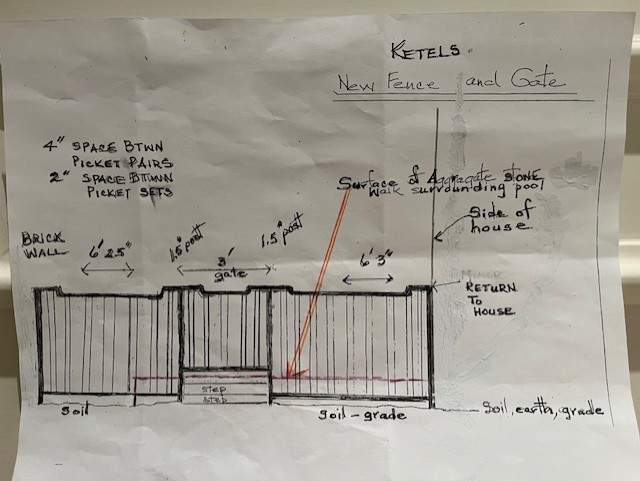 KETELS.
New Fence and Gate
4" SPACE BTWN
PICKET PAIRS
2" SPACE BTWN
PICKET SETS
Surface of Aggregate STONE
Walk surrounding pool
Side of
house
BRICK
WALL
6' 2.5"
1.5" post
3'
gate
1.5" post
6' 3"
RETURN
TO
HOUSE
STEP
STEP
Soil
Soil-grade
Soil, earth, grade